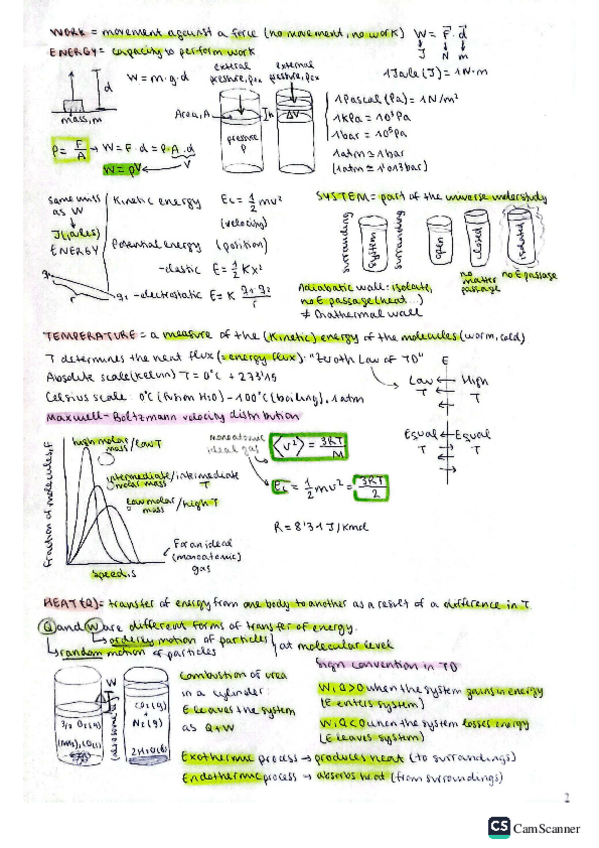 WORK = movement against a force (no movement, no work) W = F · d
J N m
ENERGY = capacity to perform work
1 Joule (J) = 1 N·m
W = m·g·d
d
mass, m
external pressure, pex
external pressure, pex
Area, A
h
ΔV
pressure
p
1 Pascal (Pa) = 1 N/m²
1 kPa = 10³ Pa
1 bar = 10⁵ Pa
1 atm ≃ 1 bar
(1 atm = 1'013 bar)
P = F/A → W = F·d = P·A·d
V
W = pV
same units as W
J (joules)
ENERGY
Kinetic energy Ec = ½ mv²
(velocity)
Potential energy (position)
- elastic E = ½ Kx²
- electrostatic E = K q1·q2 / r
q2
q1
SYSTEM = part of the universe under study
surrounding
system
surrounding
open
closed
isolated
no matter passage
no E passage
Adiabatic wall: isolate,
no E passage (heat...)
≠ Diathermal wall
TEMPERATURE = a measure of the (kinetic) energy of the molecules (warm, cold)
T determines the heat flux (= energy flux): "Zeroth Law of TD"
Absolute scale (Kelvin) T = 0°C + 273'15
Celsius scale: 0°C (fusion H2O) - 100°C (boiling), 1 atm
Maxwell-Boltzmann velocity distribution
E
Low T
High T
Equal T
Equal T
Fraction of molecules, F
high molar mass / low T
intermediate molar mass / intermediate T
low molar mass / high T
For an ideal (monoatomic) gas
speed, s
monoatomic ideal gas
⟨v²⟩ = 3RT / M
Ec = ½ mv² = 3RT / 2
R = 8'31 J/Kmol
HEAT (Q) = transfer of energy from one body to another as a result of a difference in T.
Q and W are different forms of transfer of energy.
orderly motion of particles
random motion of particles
at molecular level
W
3/2 O2(g)
CO2(g)
+
N2(g)
2H2O(l)
Combustion of urea
in a cylinder:
E leaves the system
as Q+W
Sign convention in TD
W, Q > 0 when the system gains in energy
(E enters system)
W, Q < 0 when the system losses energy
(E leaves system)
Exothermic process → produces heat (to surroundings)
Endothermic process → absorbs heat (from surroundings)
2
CS CamScanner